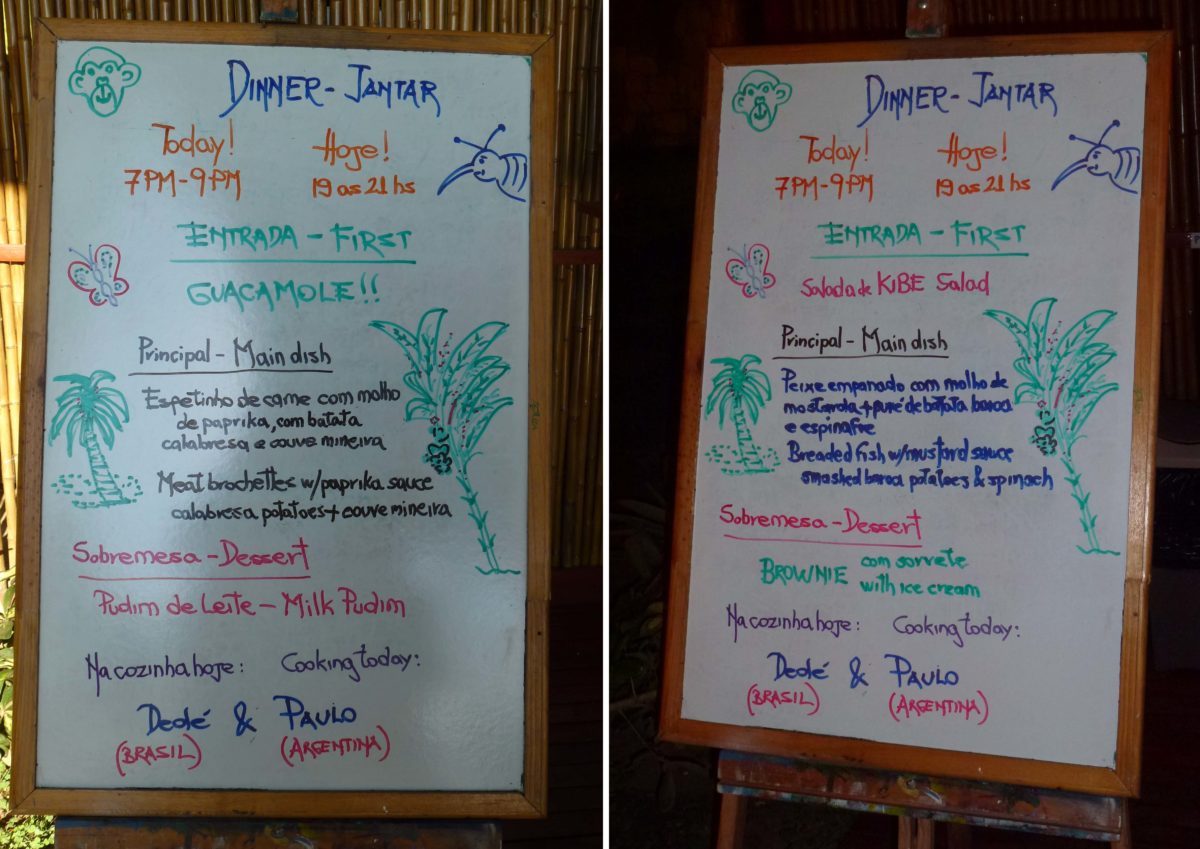 DINNER - JANTAR
Today! Hoje!
7PM-9PM 19 as 21 hs
ENTRADA - FIRST
GUACAMOLE!!
Principal - Main dish
Espetinho de carne com molho
de paprika, com batata
calabresa e couve mineira
Meat brochettes w/paprika sauce
calabresa potatoes + couve mineira
Sobremesa - Dessert
Pudim de Leite - Milk Pudim
Na cozinha hoje: Cooking today:
Dedé & PAULO
(BRASIL) (ARGENTINA)
DINNER - JANTAR
Today! Hoje!
7PM-9PM 19 as 21 hs
ENTRADA - FIRST
Salada de KIBE Salad
Principal - Main dish
Peixe empanado com molho de
mostarda + puré de batata baroa
e espinafre
Breaded fish w/mustard sauce
smashed baroa potatoes & spinach
Sobremesa - Dessert
BROWNIE com sorvete
with ice cream
Na cozinha hoje: Cooking today:
Dedé & PAULO
(BRASIL) (ARGENTINA)